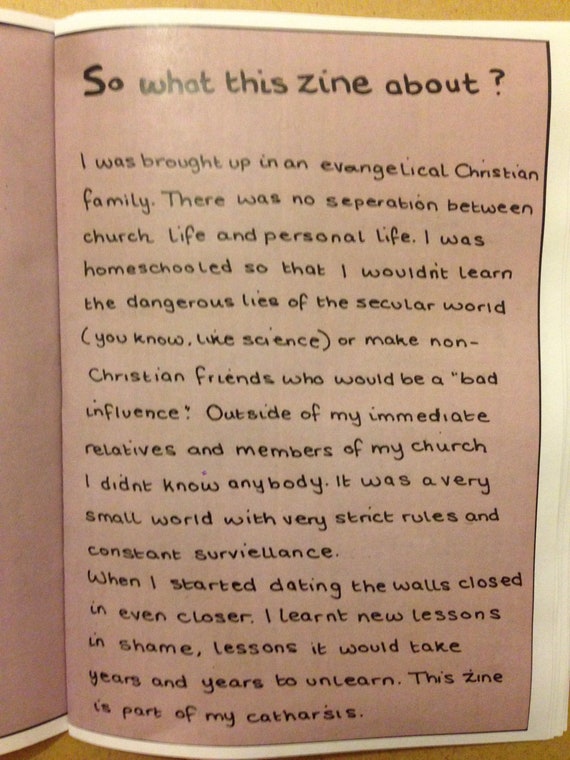 So what this zine about?
I was brought up in an evangelical Christian
family. There was no seperation between
church life and personal life. I was
homeschooled so that I wouldn't learn
the dangerous lies of the secular world
(you know, like science) or make non-
Christian friends who would be a "bad
influence". Outside of my immediate
relatives and members of my church
I didnt know anybody. It was a very
small world with very strict rules and
constant surviellance.
When I started dating the walls closed
in even closer. I learnt new lessons
in shame, lessons it would take
years and years to unlearn. This zine
is part of my catharsis.